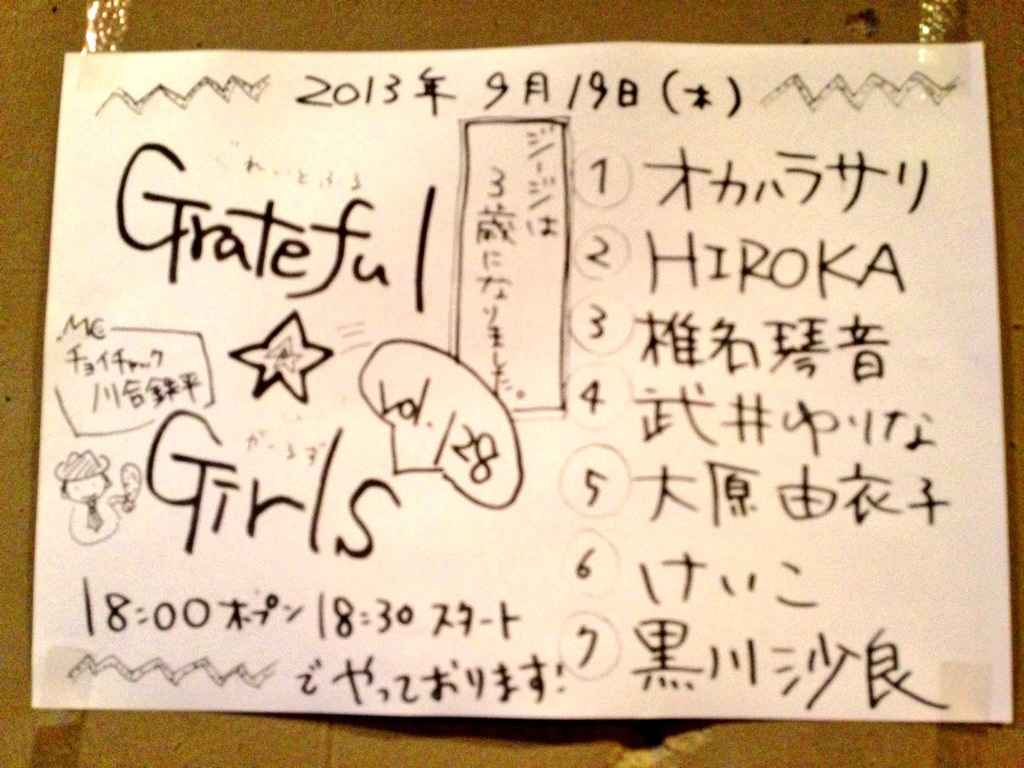 2013年 9月19日(木)
ぐれいとふる
Grateful
ジージは
3歳になりました。
MC
チョイチャック
川合鉄平
vol.128
がーるず
Girls
18:00 オープン 18:30 スタート
でやっております!
1 オカハラサリ
2 HIROKA
3 椎名琴音
4 武井ゆりな
5 大原由衣子
6 けいこ
7 黒川沙良